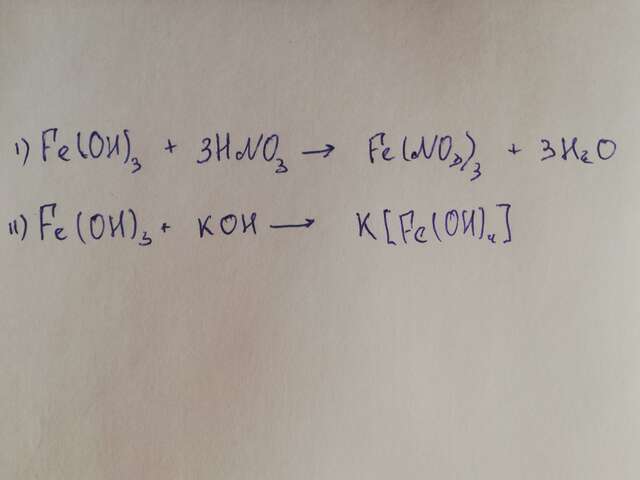 I) Fe(OH)₃ + 3HNO₃ → Fe(NO₃)₃ + 3H₂O
II) Fe(OH)₃ + KOH → K[Fe(OH)₄]